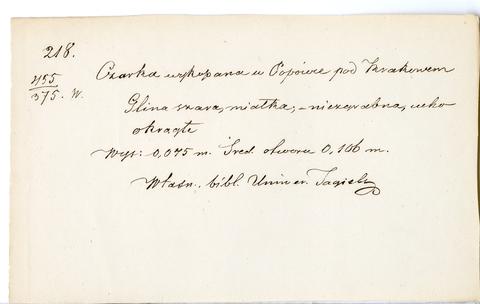 218.
455
375. W.
Czarka wykopana w Popówce pod Krakowem
Glina szara, miałka, – niezgrabna, ucho
okrągłe
Wys: 0,075 m. Śred. otworu 0,106 m.
Własn. bibl. Uniwer. Jagiell.